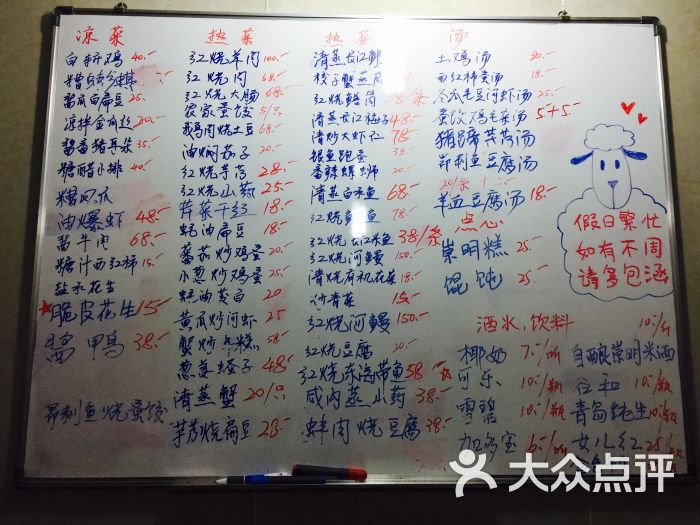 凉菜
白斩鸡 40.-
酱瓜白扁豆 25.
凉拌金瓜丝 20.-
酱香猪耳朵 35.-
糖醋小排 40.-
糟凤爪
油爆虾 48.-
酱牛肉 68.-
糖汁西红柿 15.-
盐水花生
脆皮花生 15.-
酱鸭 38.-
昂刺鱼烧蛋饺
热菜
红烧羊肉 100.-
红烧肉 68.-
红烧大肠 68.-
农家蛋饺 5/只
鸡肉烧土豆 68.-
油焖茄子 20.-
红烧芋艿 28.-
红烧山药 25.-
芹菜干丝 18.-
蚝油扁豆 18.-
蕃茄炒鸡蛋 20.-
小葱炒鸡蛋 25.-
蚝油茭白 20
黄瓜炒河虾 25
蟹炒年糕 58.-
葱姜蛏子 48.-
清蒸蟹 20/只
芋艿烧扁豆 28.-
热菜
清蒸长江鮰
梭子蟹蒸肉 38.-
红烧鲳鱼 38/条
清蒸长江 48.-
清炒大虾仁 78.-
银鱼跑蛋 38.-
香辣螺蛳 20.-
清蒸白水鱼 68.-
红烧 鱼 78.-
红烧长江 鱼 38/条
红烧河鲫 38.-
清烧有机花菜 18.-
炒青菜 15.-
红烧河鳗 150.-
红烧豆腐 20.
红烧东海带鱼 38.-
咸肉蒸山药 38.-
蚌肉烧豆腐 38.-
汤
土鸡汤 80.-
西红柿蛋汤 18.-
冬瓜毛豆河虾汤 25.-
蛋饺鸡毛菜汤 5+5.-
猪蹄芋艿汤
昂刺鱼豆腐汤
20/条
羊血豆腐汤 18.-
点心
崇明糕 25.-
馄饨 25.-
假日繁忙
如有不周
请多包涵
酒水,饮料
椰奶 7.-/听
可乐 10.-/瓶
雪碧 10.-/瓶
加多宝 6.-/听
10.-/斤
自酿崇明米酒
石和 10.-/瓶
青岛纯生 10.-/瓶
女儿红 25.-/瓶
大众点评